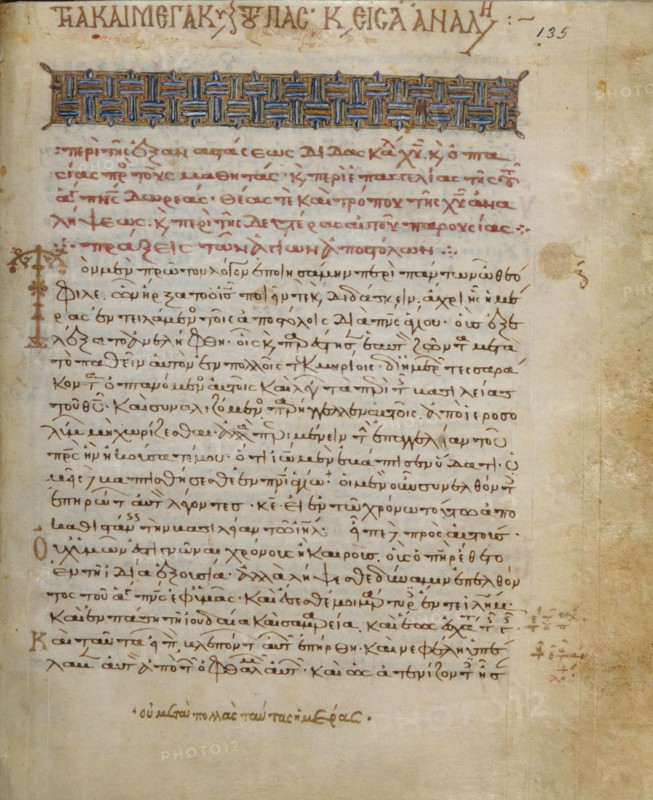 135
περὶ τῆς ἐξ ἀναστάσεως διδασκα^λ χυ. κ, ὀπτα
σίας πρ τοὺς μαθητάς· κ, περὶ ἐπαγγελίας τῆς τοῦ
ἁγ πνς δωρεᾶς· θέας τὲ καὶ τρόπου τῆς χυ ἀνα
λήψεως· κ, περὶ τῆς δευτέρας αὐτοῦ παρουσίας
πράξεις τῶν ἁγίων ἀποστόλων
Τὸν μὲν πρῶτον λόγον ἐποιησάμην περὶ πάντων ὦ θεό
φιλε. ὧν ἤρξατο ὁ ις ποιεῖν τε κ, διδάσκειν. ἄχρι ἧς ἡμέ
ρας ἐντειλάμενος τοῖς ἀποστόλοις διὰ πνς ἁγίου· οὓς ἐξε
λέξατο ἀνελήφθη· οἷς κ, παρέστησεν ἑαυτὸν ζῶντα μετὰ
τὸ παθεῖν αὐτὸν ἐν πολλοῖς τεκμηρίοις· δι ἡμερῶν τεσσαρά
κοντα ὀπτανόμενος αὐτοῖς καὶ λέγων τὰ περὶ τῆς βασιλείας
τοῦ θυ· καὶ συναλιζόμενος παρήγγελλεν αὐτοῖς. ἀπὸ ἱεροσο
λύμων μὴ χωρίζεσθαι· ἀλλὰ περιμένειν τὴν ἐπαγγελίαν τοῦ
πρς ἣν ἠκούσατέ μου· ὅτι ἰωάννης μὲν ἐβάπτισεν ὕδατι· ὑ
μεῖς δὲ βαπτισθήσεσθε ἐν πνι ἁγίω· οἱ μὲν οὖν συνελθόντες
ἐπηρώτων αὐτὸν λέγοντες· κε· εἰ ἐν τῷ χρόνω τούτω ἀπο
καθιστάνεις τὴν βασιλείαν τῷ ιηλ· εἶπε δὲ πρὸς αὐτούς·
Οὐχ ὑμῶν ἐστὶ γνῶναι χρόνους ἢ καιρούς. οὓς ὁ πηρ ἔθετο
ἐν τῇ ἰδίᾳ ἐξουσίᾳ· ἀλλὰ λήψεσθε δύναμιν ἐπελθόν
τος τοῦ ἁγ πνς ἐφ ἡμᾶς· καὶ ἔσεσθέ μοι μάρτυρες ἔν τε ιλημ·
καὶ ἐν πάσῃ τῇ ἰουδαίᾳ καὶ σαμαρείᾳ. καὶ ἕως ἐσχάτου τῆς γῆς
Καὶ ταῦτα εἰπὼν. βλεπόντων αὐτῶν ἐπήρθη· καὶ νεφέλη ὑπέ
λαβεν αὐτὸν ἀπὸ τῶν ὀφθαλμῶν αὐτῶν· καὶ ὡς ἀτενίζοντες ἦσ
οὐ μετὰ πολλὰς ταύτας ἡμέρας
PHOTO12